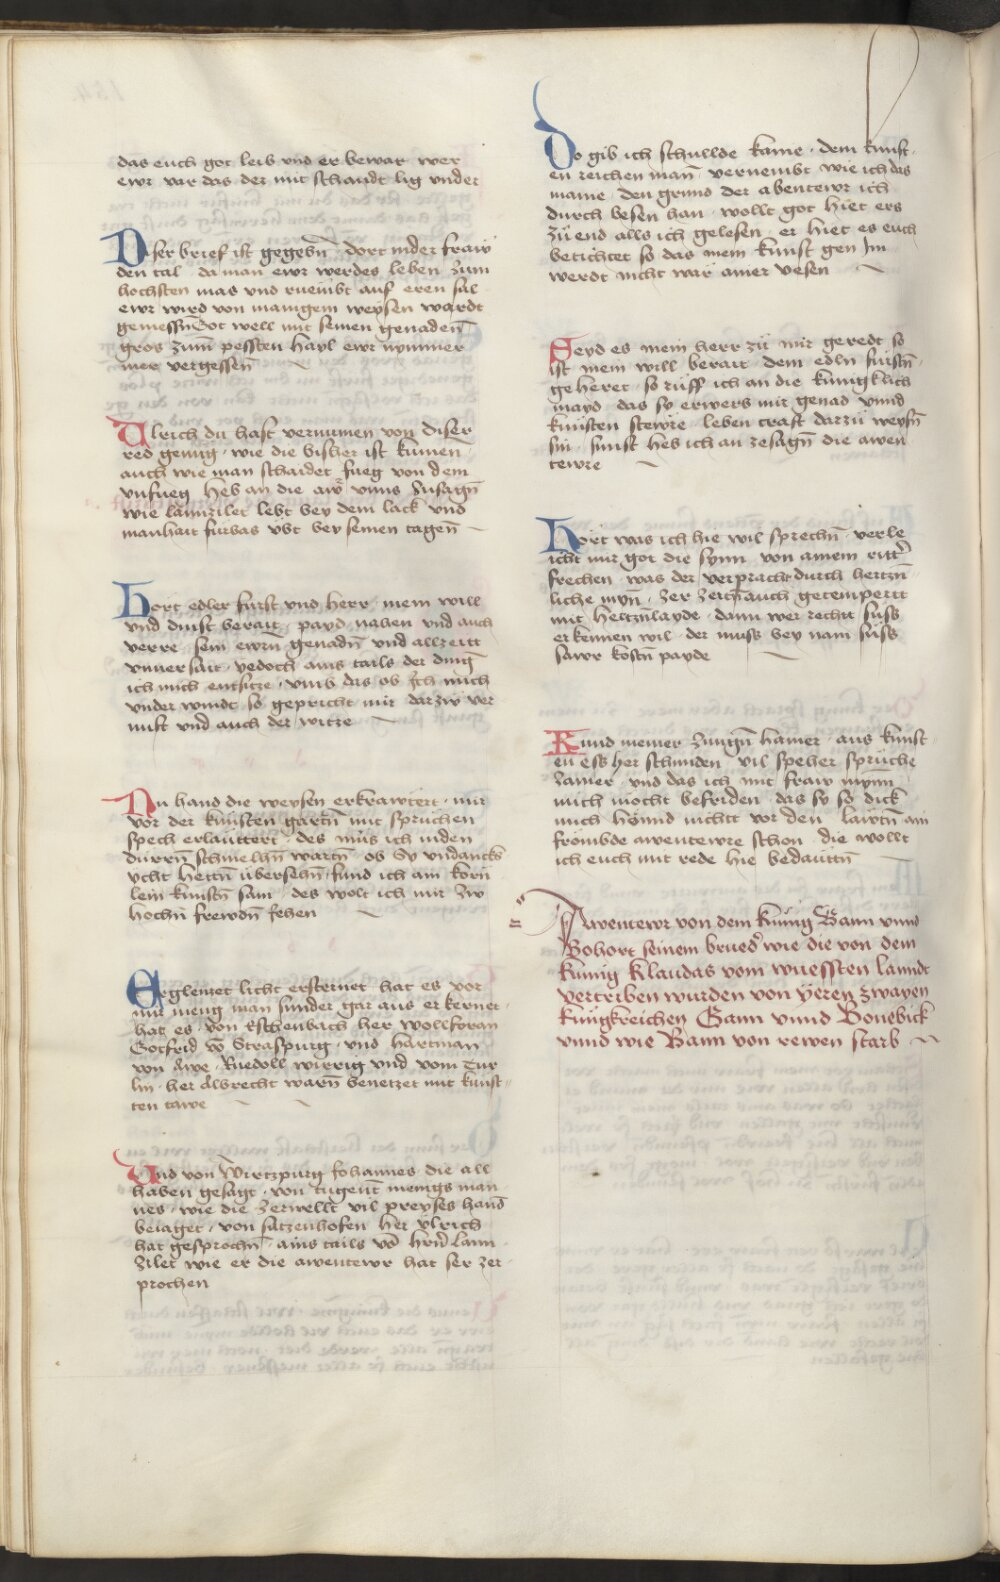 das euch got leib vnd er bewar wer
ewr var das der mit schandt lig vnder
Diser brief ist gegebn̄ dort inder fraw
den tal da man ewr werdes leben zum
hochsten mas vnd ruembt auf eren sal
ewr wird von manigem weysen wardt
gemessn̄ Got well mit seinen genaden
gros zum pessten hayl ewr nymmer
mer vergessen̄
Vlrich du hast vernumen von diser
red genug · wie die bisher ist kumen ·
auch wie man schaidet fueg von dem
vnfueg Heb an die aw̄ vnns zusagn̄
wie lannzilet lebt bey dem lack vnd
manhait furbas vbt bey seinen tagen̄
Hort edler furst vnd herr · mein will
vnd dinst berait · payd nahen vnd auch
verre · sein ewrn̄ genadn̄ vnd allzeitt
vnuersait · yedoch ains tails der ding
ich mich entsitze · vmb das ob Ich mich
vnder windt so gepricht mir darzw ver
nuft vnd auch der witze
Nu hand die weysen erkrawttert · mir
vor der kunsten gartn̄ mit spruchen
spech erlauttert · des mus ich inden
durrn̄ schmelhn̄ wartn̄ · ob Sy vndancks
ycht hettn̄ übersehn̄ · fund ich ain korn
lein kunstn̄ sam · des wolt ich mir zw
hochn̄ frewdn̄ Jehen
Erglentzet licht ersternet hat es vor
mir meng man sunder gar aus erkernet ·
hat es · von Eschenbach her wollforan
Gotfrid vō Straspurg · vnd hartman
von Awe · Ruedoll wirrig vnd vom Tur
lin · her Albrecht warn̄ benetzet mit kunst
ten tawe
Vnd von Wirtzpurg Johannes die all
haben gesagt · von tugent menigs man
nes · wie die zerwellt vil preyses hand
beiaget · von sätzenhofen her vlrich
hat gesprochn̄ · ains tails vō hrn̄ lann
zilet wie er die awentewr hat ser zer
prochen
Do gib ich schullde kaine · dem kunst
en reichen man · vernembt wie ich das
maine · den grund der abentewr ich
durch besen han · wollt got hiet ers
zu end alls ich gelesen · er hiet es euch
berichtet so das mein kunst gen Im
werdt nicht war ainer vesen
Seyd es mein herr zu mir geredt so
ist mein will berait · dem edln furstn̄
geheret · so ruff ich an die kunigklich
mayd · das sy erwerb mir genad vnnd
kunsten stewre · leben craft darzu weysn̄
sin · sunst heb ich an zesagn̄ die awen
tewre
Hort was ich hie wil sprechn̄ · verle
icht mir got die synn von ainem rittr̄
frechen · was der verpracht durch hertzn̄
liche myn̄ · Jer Zerch auch getempertt
mit hertznlayde · dann wer recht suss
erkennen wil · der muss bey nam süss
sawr kostn̄ payde
Kund meiner zungn̄ hamer · aus kunst
en ess her schmiden vil speher spruche
zamer · vnd das ich mit fraw mynn
mich mocht befriden · das sy so dick
mich hönnd nichtt vor den lawtn̄ ain
frömbde awentewre schon · die wollt
ich euch mit rede hie bedauttn̄
Awentewr von dem kunig Bann vnnd
Bohort seinem brueder wie die von dem
kunig Klaudas vom wuessten lanndt
vertriben wurden von yeren zwayen
kunigkreichen Gann vnnd Bonebick
vnnd wie Bann von rewen starb